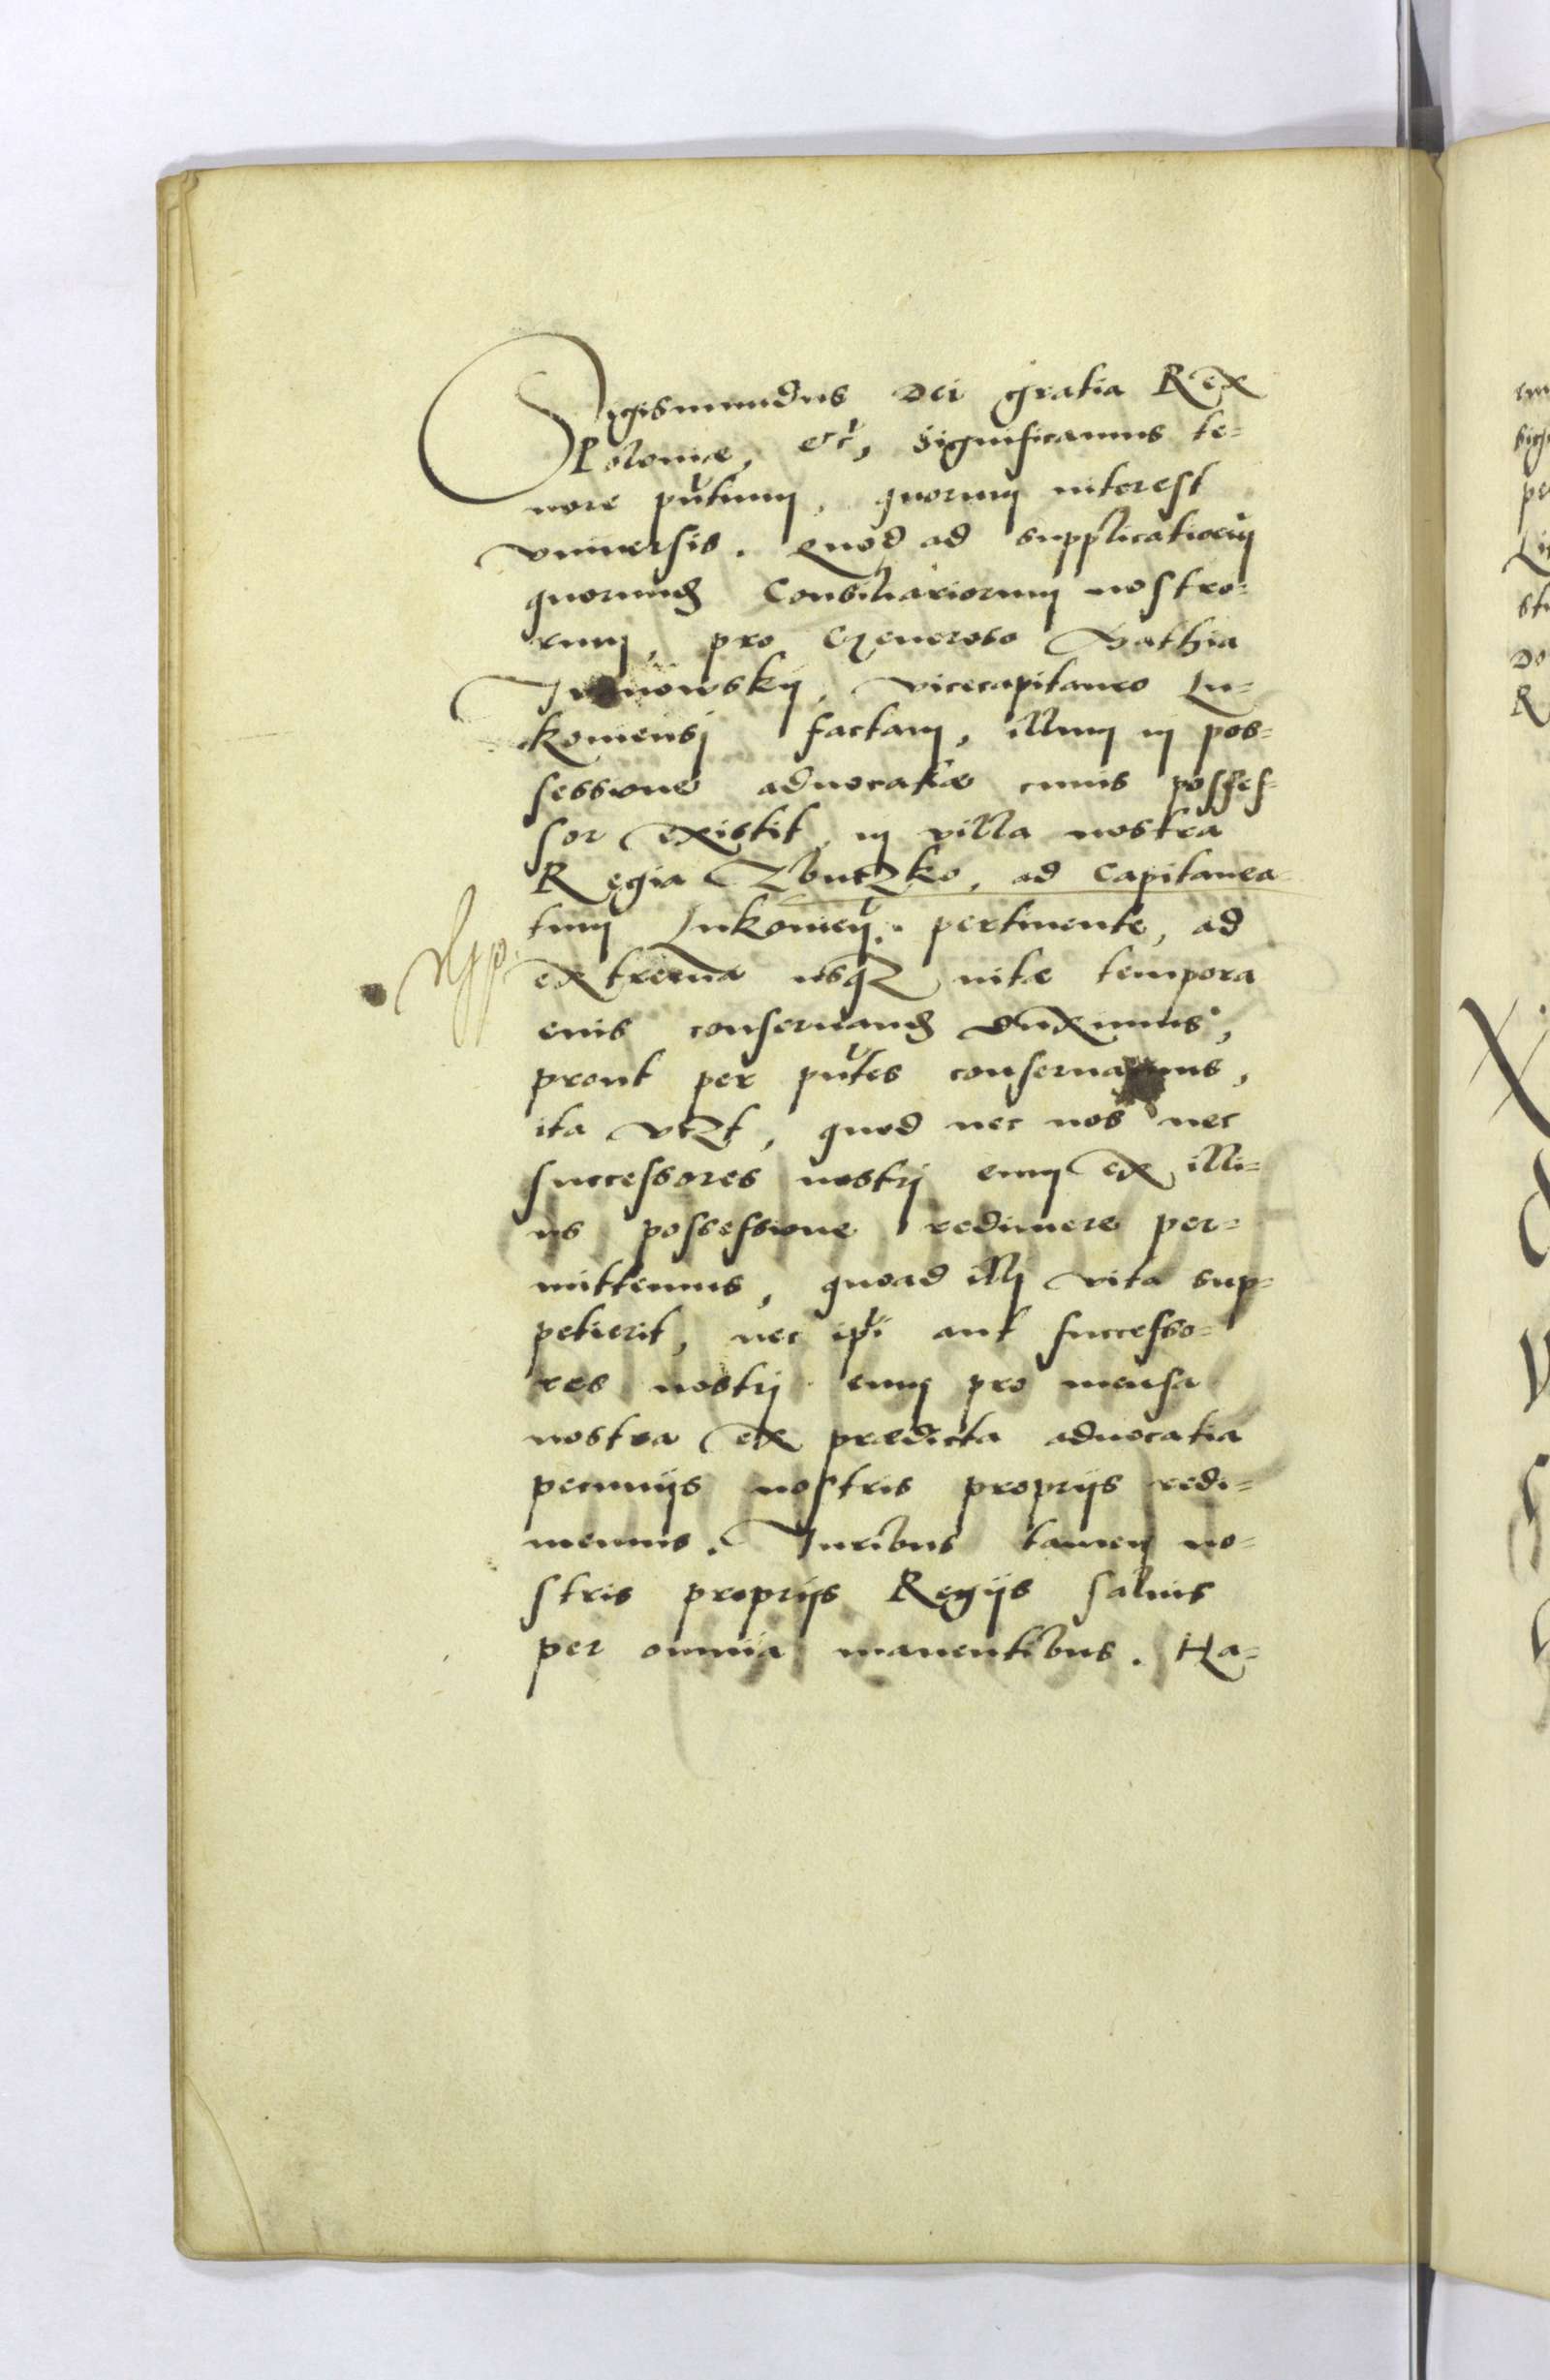 Sigismundus Dei gratia Rex
Poloniæ, etc, Significamus te=
nore pntium, quorum interest
vniuersis. Quod ad supplicationem
quorund Consiliariorum nostro=
rum, pro Generoso Mathia
vicecapitaneo Lu=
koviensj factam, illum in pos=
sessione aduocatiæ cuius posses=
sor existit, in villa nostra
Regia Zbutzko, ad Capitanea=
tum Lukovien. pertinente, ad
extrema usqz uitæ tempora
euis conseruand duximus,
prout per pntes conseruamus,
ita vtzt, quod nec nos nec
successores nostrj eum ex illi=
us possessione redimere per=
mittemus, quoad illj vita sup=
petierit, nec ipsi aut successo=
res nostrj eum pro mensa
nostra ex prædicta aduocatia
pecunijs nostris proprijs redi=
memus. Iuribus tamen no=
stris proprijs Regijs saluis
per omnia manentibus. Ha=